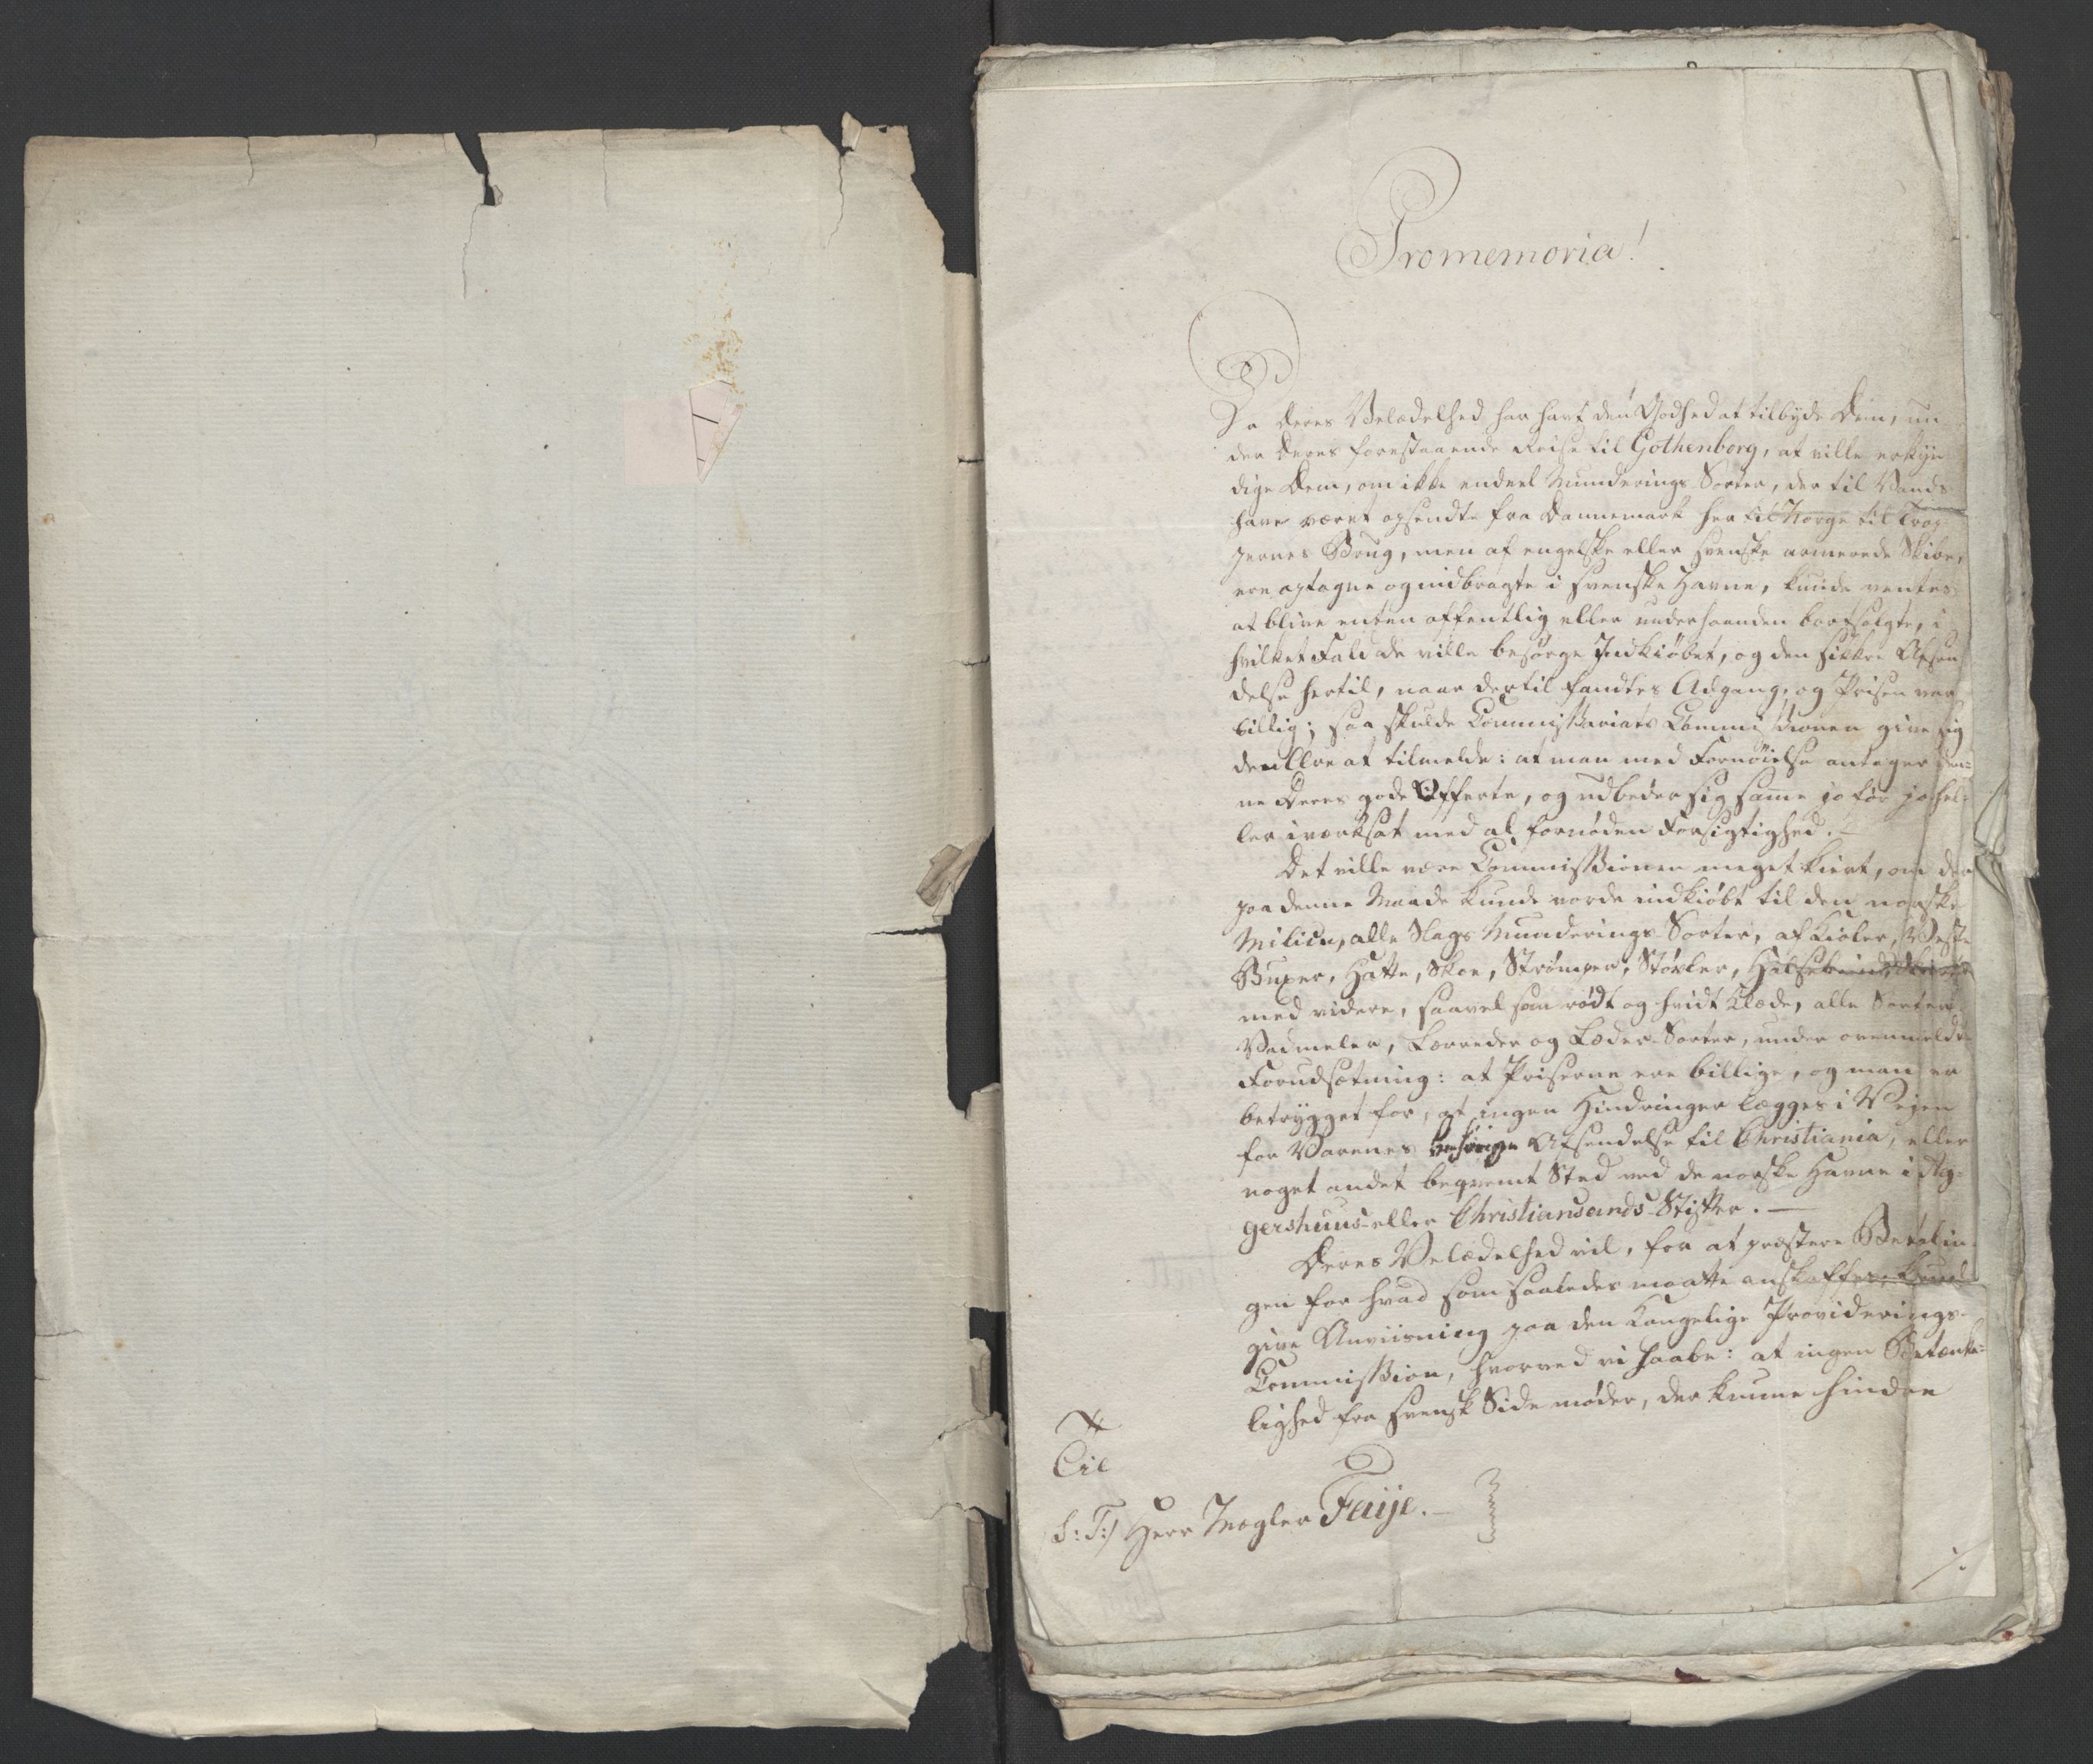 Promemoria!
Da Deres Velædelhed har havt den Godhed at tilbyde Dem, un
der Deres forestaaende Reise til Gothenborg, at ville erkyn
dige Dem, om ikke endeel Munderings Sorter, der til Vands
have været opsendte fra Dannemark her til Norge til Trop
pernes Brug, men af engelske eller svenske armerede Skibe,
ere optagne og indbragte i svenske Havne, kunde ventes
at blive enten offentlig eller underhaanden bortsolgte, i
hvilket Fald De ville besørge Indkiøbet, og den sikkre Afsen
delse hertil, naar dertil fandtes Adgang, og Prisen var
billig; saa skulde Commissariats Commissionen give sig
den Ære at tilmelde: at man med Fornøielse antager den=
ne Deres gode Offerte, og udbeder sig samme jo før jo hel
ler iværksat med al fornøden Forsigtighed. –
Det ville være Commissionen meget kiert, om der
paa denne Maade kunde vorde indkiøbt til den norske
Milice, alle Slags Munderings-Sorter, af Kioler, Veste
Buxer, Hatte, Skoe, Strømper, Støvler, Halsebind,
med videre, saavel som rødt og hvidt Klæde, alle Sorter
Vadmeler, Lærreder og Læder-Sorter, under ovenmeldte
Forudsætning: at Priserne ere billige, og man er
betrygget for, at ingen Hindringer lægges i Vejen
for Varenes Afsendelse til Christiania, eller
noget andet beqvemt Sted ved de norske Havne i Ag=
gershuus- eller Christiansands-Stifter. —
Deres Velædelhed vil, for at præstere Betalin
gen for hvad som saaledes maatte anskaffes,
give Anviisning paa den Kongelige Providerings-
Commission, hvorved vi haabe: at ingen Betænke=
lighed fra svensk Side møder, der kunne hindre
Til
S: T:/ Herr Mægler Faije. –